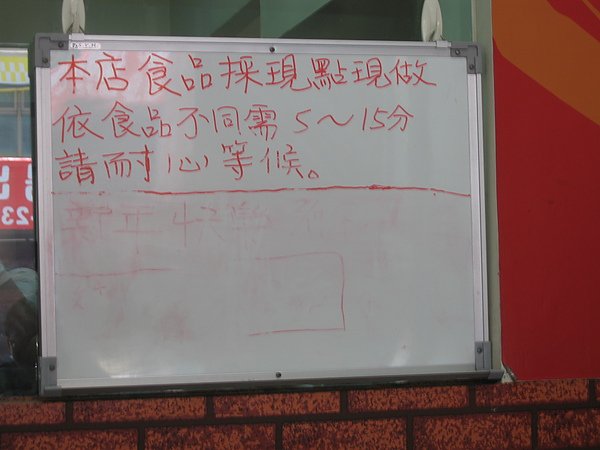 本店食品採現點現做
依食品不同需 5～15分
請耐心等候。